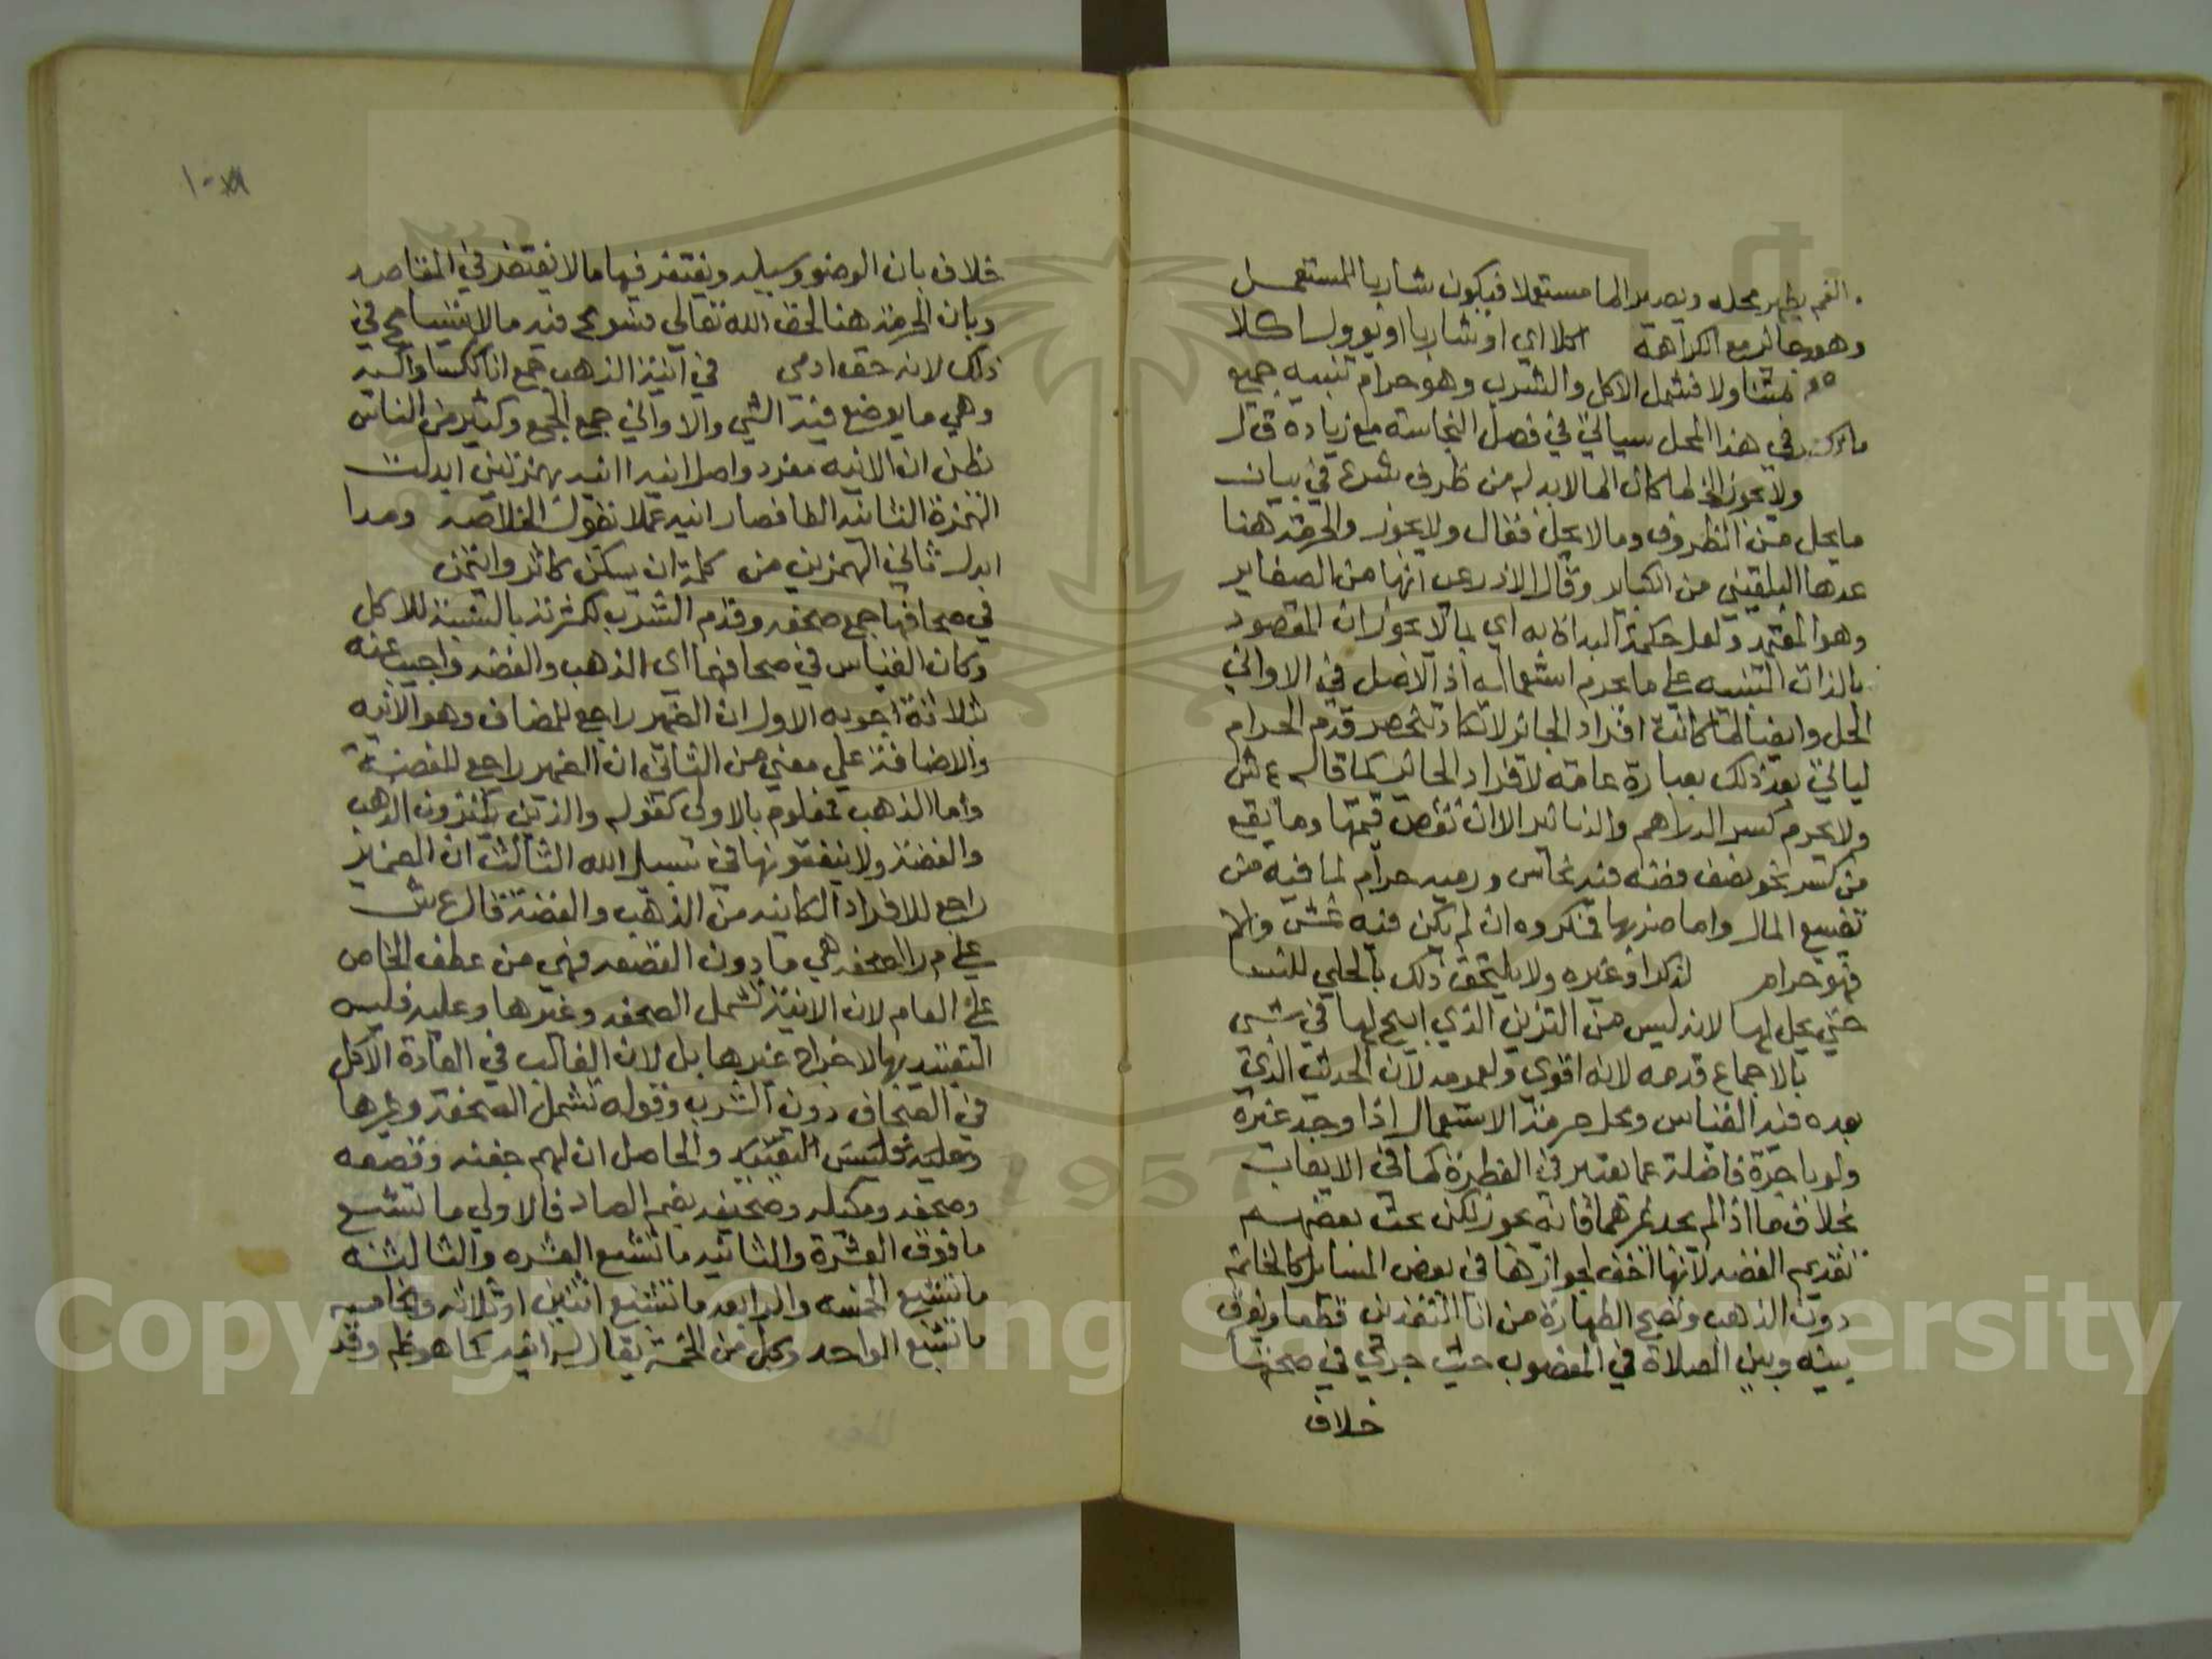 الفم يطهر محله ويصير الما مستعملا فيكون شاربا للمستعمل
وهو جائز مع الكراهة اكلا اي او شاربا او يوول اكلا
متناولا فشمل الاكل والشرب وهو حرام تنبيه جميع
في هذا المحل سياتي في فصل النجاسة مع زيادة قال
ولا يجوز الخ لما كان الما لابد له من ظرف شرع في بيان
ما يحل من الظروف وما لا يحل فقال ولا يجوز والحرمة هنا
عدها البلقيني من الكباير وقال الاذرعي انها من الصغاير
وهو المعتمد ولعل حكمة البداة به اي بما لا يجوز ان المقصود
بالذات التنبيه علي ما يحرم استعماله اذ الاصل في الاواني
الحل وايضا لما كانت افراد الجائز لا تكاد تنحصر قدم الحرام
لياتي بعد ذلك بعبارة عامة لافراد الجائز كما قاله ع ش
ولا يحرم كسر الدراهم والدنانير الا ان نقص قيمتها وما يقع
من كسر نحو نصف فضة فيه نحاس ورميه حرام لما فيه من
تضييع المال واما ضربها فمكروه ان لم يكن فيه غش والا
فهو حرام لذكر او غيره ولا يلتحق ذلك بالحلي للنسا
حتي يحل لها لانه ليس من التزين الذي ابيح لها في شي
بالاجماع قدمه لانه اقوي ولعمومه لان الحديث الذي
بعده فيه القياس ومحل حرمة الاستعمال اذا وجد غيره
ولو باجرة فاضلة عما يعتبر في الفطرة كما في الايعاب
بخلاف ما اذا لم يجد غيرهما فانه يجوز لكن بحث بعضهم
تقديم الفضه لانها اخف لجوازها في بعض المسايل كالخاتم
دون الذهب وتصح الطهارة من انا النقدين قطعا ويفرق
بينه وبين الصلاة في المغصوب حيث جري في صحتها
خلاف
خلاف بان الوضو وسيله ويغتفر فيها ما لا يغتفر في المقاصد
وبان الحرمة هنا لحق الله تعالي فسومح فيه ما لا يتسامح في
ذلك لانه حق ادمي في انية الذهب جمع انا ككسا واكسيه
وهي ما يوضع فيه الشي والاواني جمع الجمع وكثير من الناس
يظن ان الانيه مفرد واصل انيه اانيه بهمزتين ابدلت
الهمزة الثانيه الفا فصار انيه عملا بقول الخلاصه ومدا
ابدل ثاني الهمزين من كلمة ان يسكن كاثر وائتمن
في صحافها جمع صحفه وقدم الشرب لكثرته بالنسبة للاكل
وكان القياس في صحافهما اي الذهب والفضه واجيب عنه
بثلاثة اجوبه الاول ان الضمير راجع للمضاف وهو الانيه
والاضافة علي معني من الثاني ان الضمير راجع للفضة
واما الذهب فمعلوم بالاولي كقوله والذين يكنزون الذهب
والفضة ولا ينفقونها في سبيل الله الثالث ان الضمير
راجع للافراد الكاينه من الذهب والفضة قال ع ش
علي م ر الصحفه هي ما دون القصعه فهي من عطف الخاص
علي العام لان الانية تشمل الصحفه وغيرها وعليه فليس
التقييد بها لاخراج غيرها بل لان الغالب في العادة الاكل
في الصحاف دون الشرب وقوله تشمل الصحفة وغيرها
وعليه فليس التقييد والحاصل ان لهم جفنه وقصعه
وصحفه ومكيله وصحيفه بضم الصاد فالاولي ما تشبع
ما فوق العشرة والثانيه ما تشبع العشره والثالثه
ما تشبع الخمسه والرابعه ما تشبع اثنين او ثلاثه والخامسه
ما تشبع الواحد وكل من الخمسة يقال له انيه كما هو ظم وقد
Copyright © King Saud University
1957